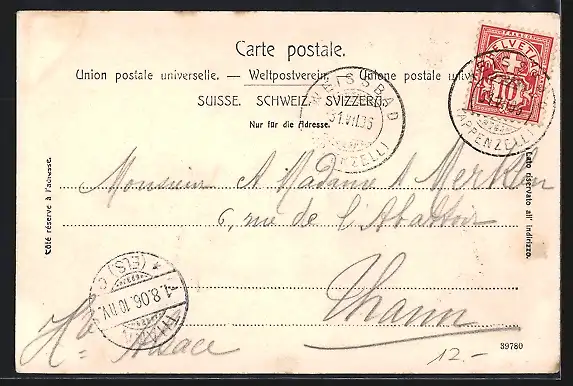 Carte postale.
Union postale universelle. — Weltpostverein. — Unione postale
SUISSE. SCHWEIZ. SVIZZERA.
Nur für die Adresse.
HELVETIA
FRANCO
10
WEISSBAD
31.VII.06
(APPENZELL)
(APPENZELL)
Côté réservé à l'adresse.
Lato riservato all' indirizzo.
Monsieur & Madame A Merklen
6, rue de l'Abattoir
Thann
Hte Alsace
THANN
(ELS)
1.8.06.10
39780
12.-